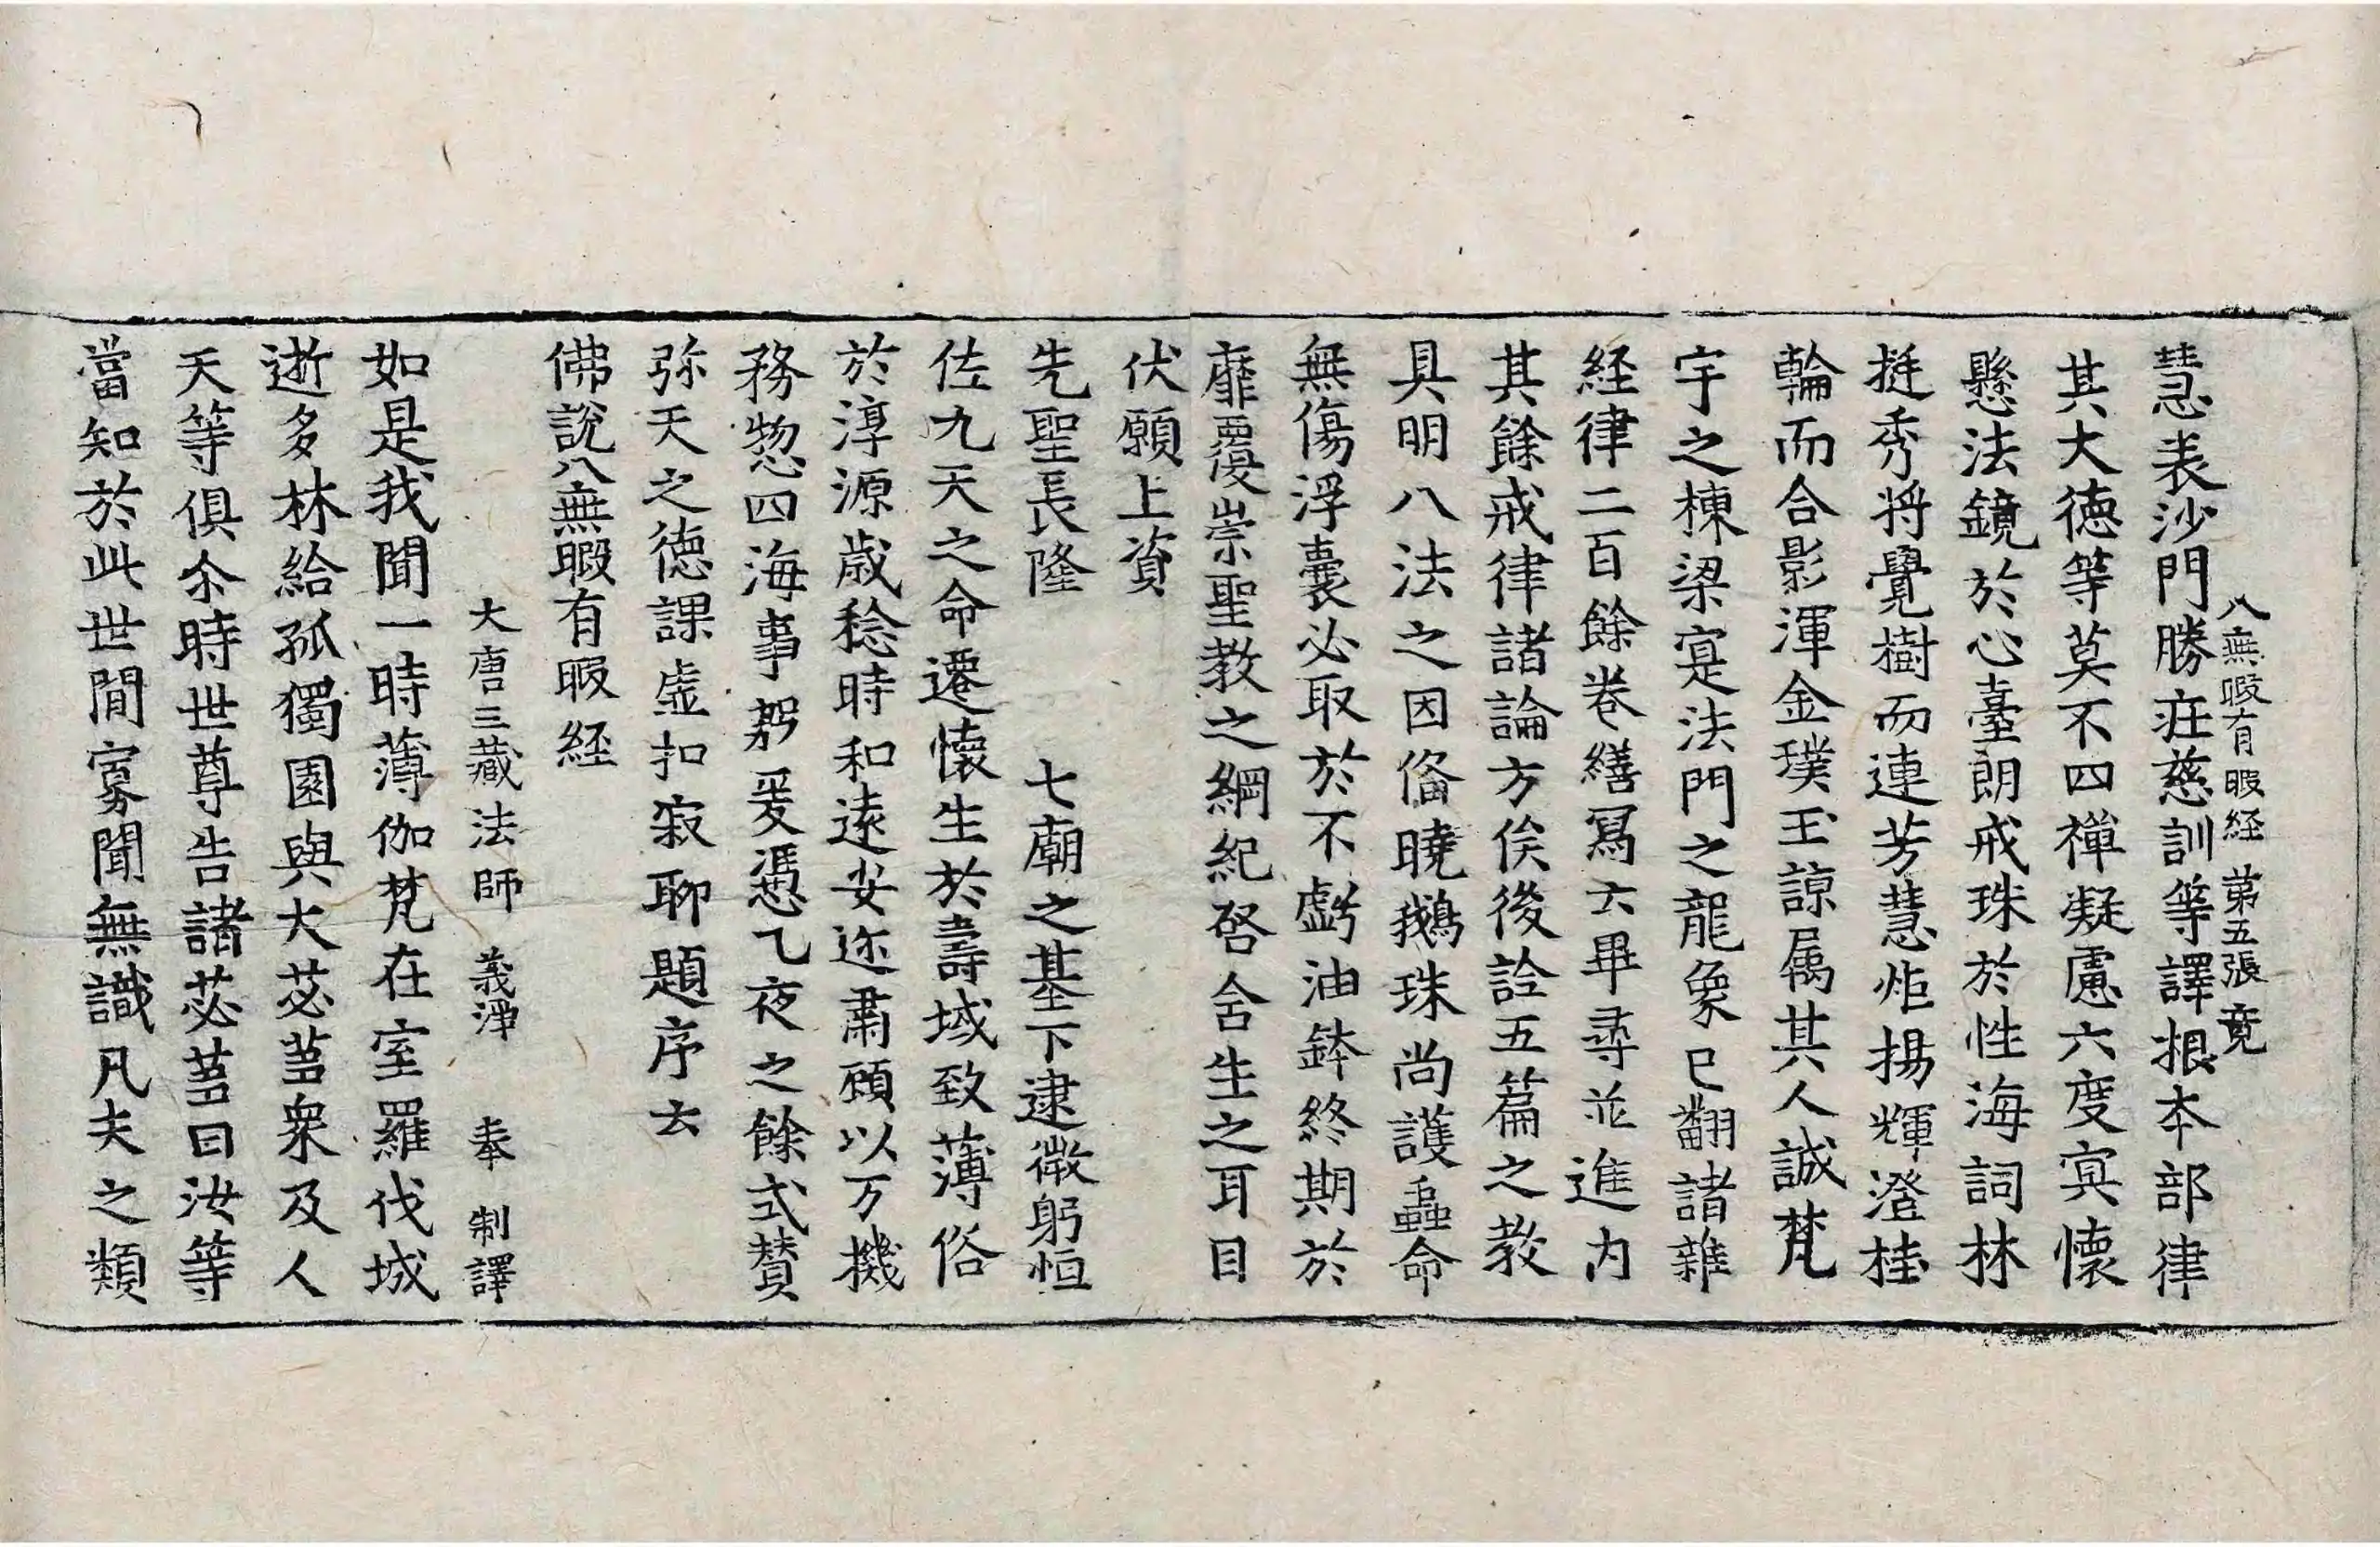 八無暇有暇経 第五張 竟
慧表沙門勝荘慈訓等譯根本部律
其大徳等莫不四禅凝慮六度㝠懐
懸法鏡於心臺朗戒珠於性海詞林
挺秀将覺樹而連芳慧炬揚輝澄桂
輪而合影渾金璞玉諒属其人誠梵
宇之棟梁寔法門之龍象已翻諸雜
経律二百餘巻繕冩云畢尋並進内
其餘戒律諸論方俟後詮五篇之教
具明八法之因俻曉鵝珠尚護蝨命
無傷浮囊必取於不虧油鉢終期於
靡覆崇聖教之綱紀啓含生之耳目
伏願上資
先聖長隆 七廟之基下逮微躬恒
佐九天之命遷懐生於壽域致薄俗
於淳源歳稔時和逺安迩肅顧以万機
務惣四海事躬爰憑乙夜之餘式賛
弥天之徳課虚扣寂聊題序云
佛説八無暇有暇経
大唐三藏法師 義淨 奉 制譯
如是我聞一時薄伽梵在室羅伐城
逝多林給孤獨園與大苾芻衆及人
天等俱尒時世尊告諸苾芻曰汝等
當知於此世間寡聞無識凡夫之類